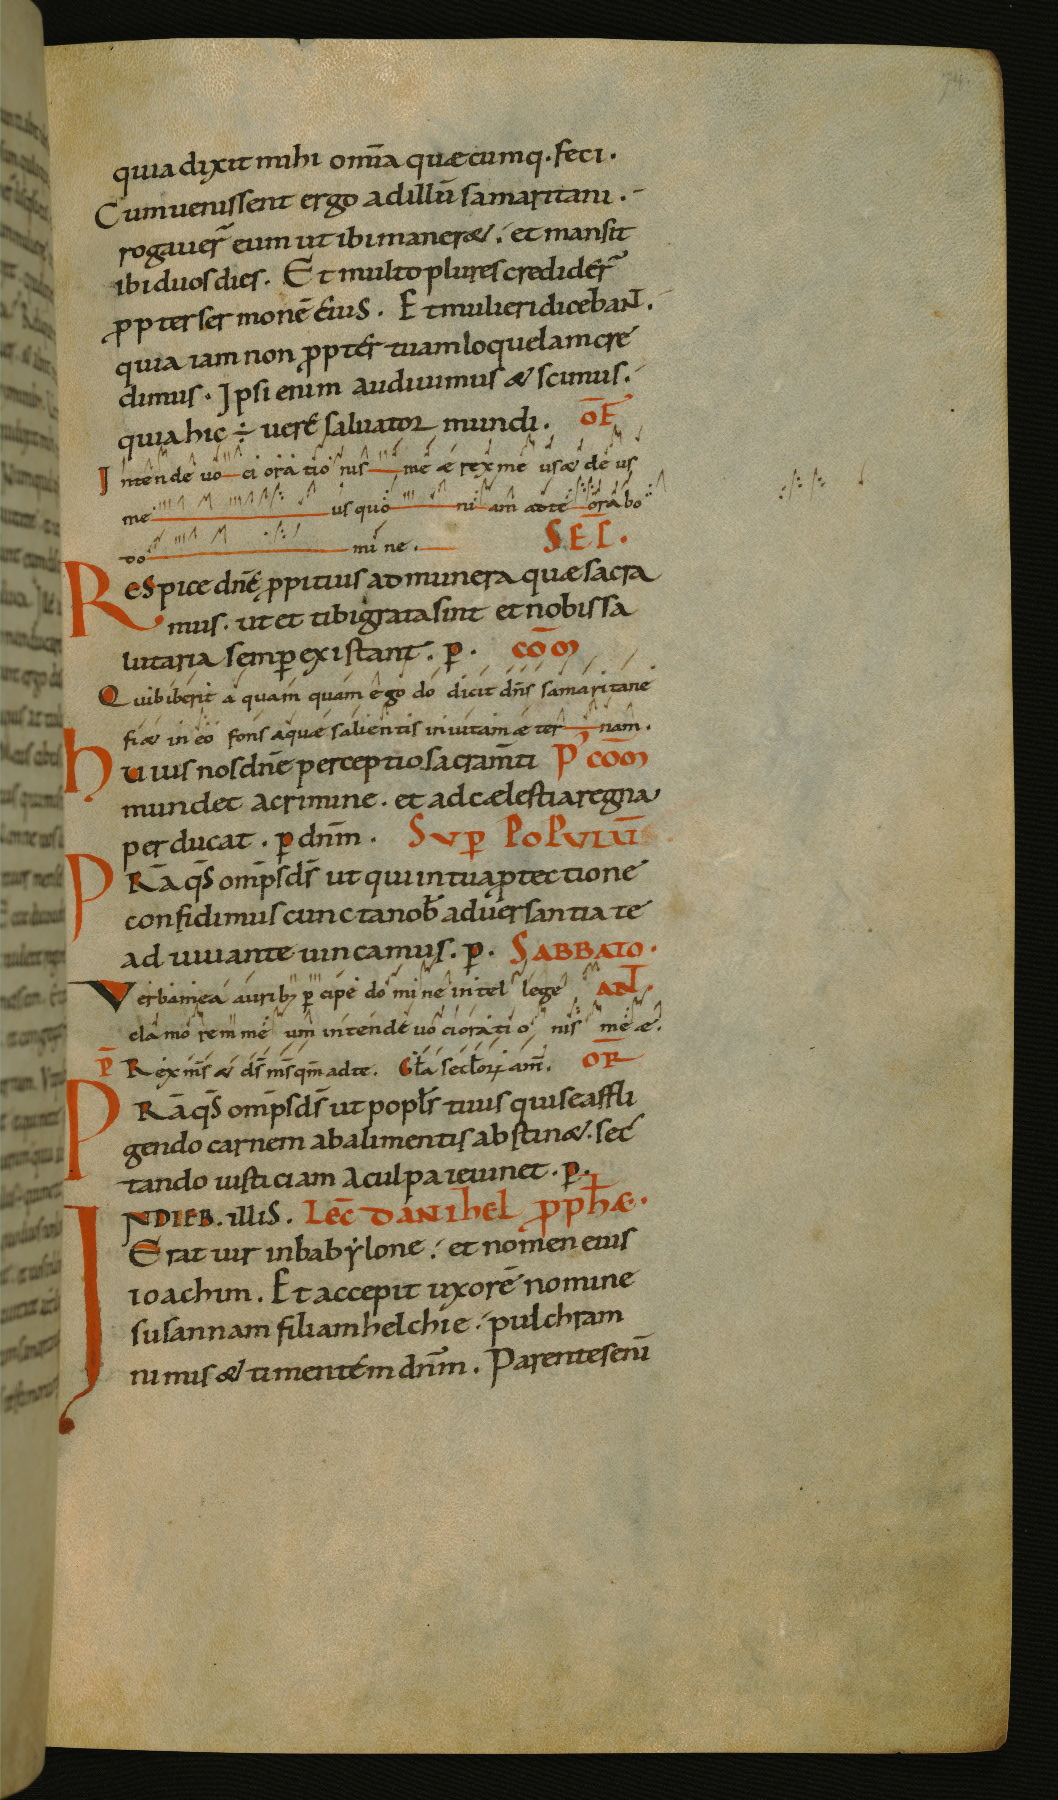 74.
quia dixit mihi om̅a quæcumq. feci.
Cum uenissent ergo ad illu̅ samaritani.
rogauer̅ eum ut ibi maneræ. et mansit
ibi duos dies. Et multo plures credider̅
ꝓpter sermone̅ eius. Et mulieri diceba̅N.
quia iam non ꝓpter tuam loquelam cre
dimus. Ipsi enim audiuimus æ scimus.
quia hic ÷ uere̅ saluator mundi. OF̅
Intende uoci orationis meæ rex meus æ deus
meus quoniam ad te orabo
domine. SEC̅.
Respice dn̅e ꝓpitius ad munera quæ sacra
mus. ut et tibi grata sint et nobis sa
lutaria semꝑ existant. ꝑ. CO̅M
Qui biberit aquam quam ego do dicit dn̅s samaritane
fiæ in eo fons aquæ salientis in uitam æternam.
Huius nos dn̅e perceptio sacram̅ti P' CO̅M
mundet a crimine. et ad cælestia regna
perducat. ꝑ dn̅m. SUꝐ POPULU̅
PRa̅ qs̅ omp̅s ds̅ ut qui in tua ꝓtectione
confidimus cuncta nob̅ aduersantia te
adiuuante uincamus. ꝑ. SABBATO.
Verba mea auribꝫ ꝑcipe domine intellege AN̅T.
clamorem meum intende uoci orationis meæ.
P̅ Rex m̅s æ ds̅ m̅s qm̅ ad te. Gl̅a secl̅orꝝ am̅. OR̅
PRa̅ qs̅ omp̅s ds̅ ut popl̅s tuus qui se affli
gendo carnem ab alimentis abstinæ. sec
tando iusticiam a culpa ieiunet. ꝑ.
IN DIEB. illis. Lec̅ DANIhEL ꝓph̅Æ.
Erat uir in babẏlone. et nomen eius
ioachim. Et accepit uxore̅ nomine
susannam filiam helchie. pulchram
nimis æ timentem dn̅m. Parentes eni̅